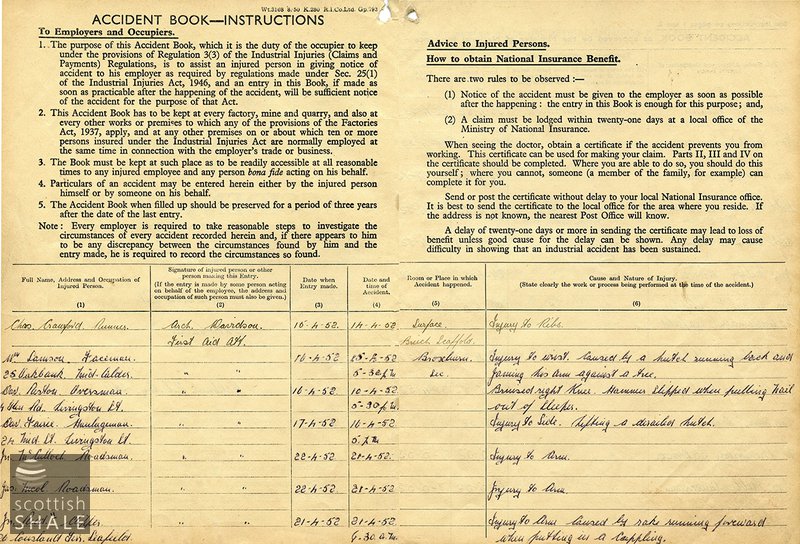 Wt.3168 8/50 K.250 R.I.Co.Ltd. Gp.792
ACCIDENT BOOK—INSTRUCTIONS
To Employers and Occupiers.
1. The purpose of this Accident Book, which it is the duty of the occupier to keep
under the provisions of Regulation 3(3) of the Industrial Injuries (Claims and
Payments) Regulations, is to assist an injured person in giving notice of
accident to his employer as required by regulations made under Sec. 25(1)
of the Industrial Injuries Act, 1946, and an entry in this Book, if made as
soon as practicable after the happening of the accident, will be sufficient notice
of the accident for the purpose of that Act.
2. This Accident Book has to be kept at every factory, mine and quarry, and also at
every other works or premises to which any of the provisions of the Factories
Act, 1937, apply, and at any other premises on or about which ten or more
persons insured under the Industrial Injuries Act are normally employed at the
same time in connection with the employer's trade or business.
3. The Book must be kept at such place as to be readily accessible at all reasonable
times to any injured employee and any person bona fide acting on his behalf.
4. Particulars of an accident may be entered herein either by the injured person
himself or by someone on his behalf.
5. The Accident Book when filled up should be preserved for a period of three years
after the date of the last entry.
Note : Every employer is required to take reasonable steps to investigate the
circumstances of every accident recorded herein and, if there appears to him
to be any discrepancy between the circumstances found by him and the
entry made, he is required to record the circumstances so found.
Advice to Injured Persons.
How to obtain National Insurance Benefit.
There are two rules to be observed :—
(1) Notice of the accident must be given to the employer as soon as possible
after the happening : the entry in this Book is enough for this purpose ; and,
(2) A claim must be lodged within twenty-one days at a local office of the
Ministry of National Insurance.
When seeing the doctor, obtain a certificate if the accident prevents you from
working. This certificate can be used for making your claim. Parts II, III and IV on
the certificate should be completed. Where you are able to do so, you should do this
yourself ; where you cannot, someone (a member of the family, for example) can
complete it for you.
Send or post the certificate without delay to your local National Insurance office.
It is best to send the certificate to the local office for the area where you reside. If
the address is not known, the nearest Post Office will know.
A delay of twenty-one days or more in sending the certificate may lead to loss of
benefit unless good cause for the delay can be shown. Any delay may cause
difficulty in showing that an industrial accident has been sustained.
Full Name, Address and Occupation of Injured Person. (1)
Signature of injured person or other person making this Entry. (If the entry is made by some person acting on behalf of the employee, the address and occupation of such person must also be given.) (2)
Date when Entry made. (3)
Date and time of Accident. (4)
Room or Place in which Accident happened. (5)
Cause and Nature of Injury. (State clearly the work or process being performed at the time of the accident.) (6)
Chas. Crawford, Runner. Arch. Davidson. 16-4-52. 14-4-52. Surface. Injury to Ribs.
First Aid Att.
Wm Lamson, Faceman. " " 16-4-52 Broxburn. Injury to wrist. Caused by a hutch running back and
25 Oakbank, Mid-Calder. 5-30 p.m. Sec. jaming his arm against a tree.
Dav. Paston, Oversman. " " 16-4-52 10-4-52 Bruised right Knee. Hammer slipped when putting nail
Rd. Livingston St. 5-30 p.m. out of sleeper.
Dav. 17-4-52 16-4-52 Injury to Side. Lifting a derailed hutch.
24 Mid St. Livingston St. 5 p.m
Jn. McCulloch Roadsman. " " 22-4-52. 21-4-52. Injury to Arm.
Jas. Nicol Roadsman. " " 22-4-52. 21-4-52. Injury to Arm.
" " 21-4-52. 21-4-52. Injury to Arm caused by rake running foreward
Seafield. 6.30 a.m. when putting in a coppling.
scottish
SHALE